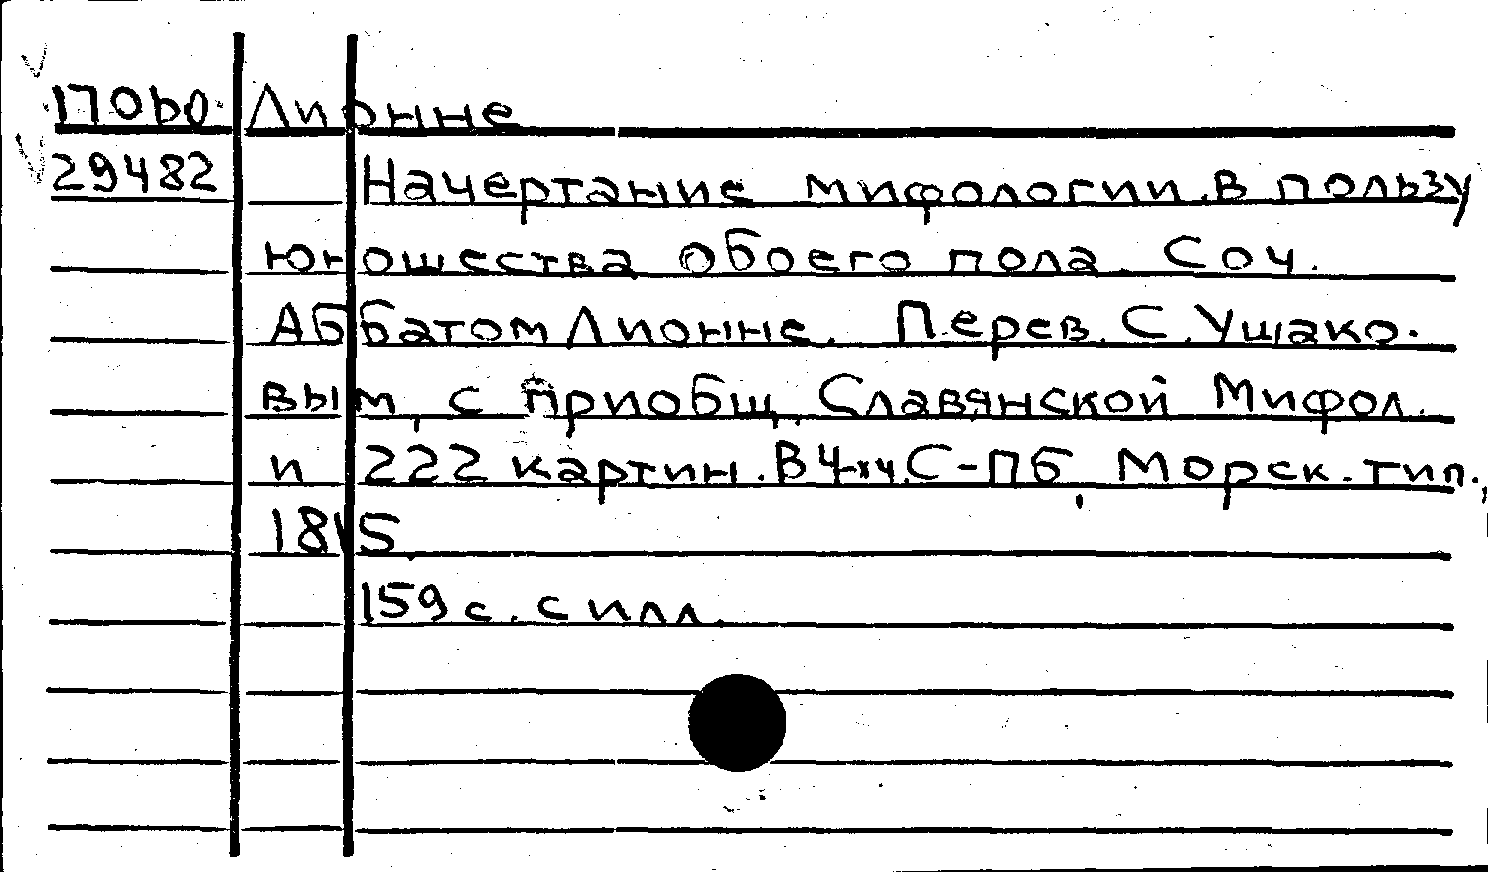 17060 Лионне
29482 Начертание мифологии. В пользу
юношества обоего пола. Соч.
Аббатом Лионне. Перев. С. Ушако-
вым, с приобщ. Славянской Мифол.
и 222 картин. В 4-х ч. С-Пб, Морск. тип.,
1815.
159 с. с илл.